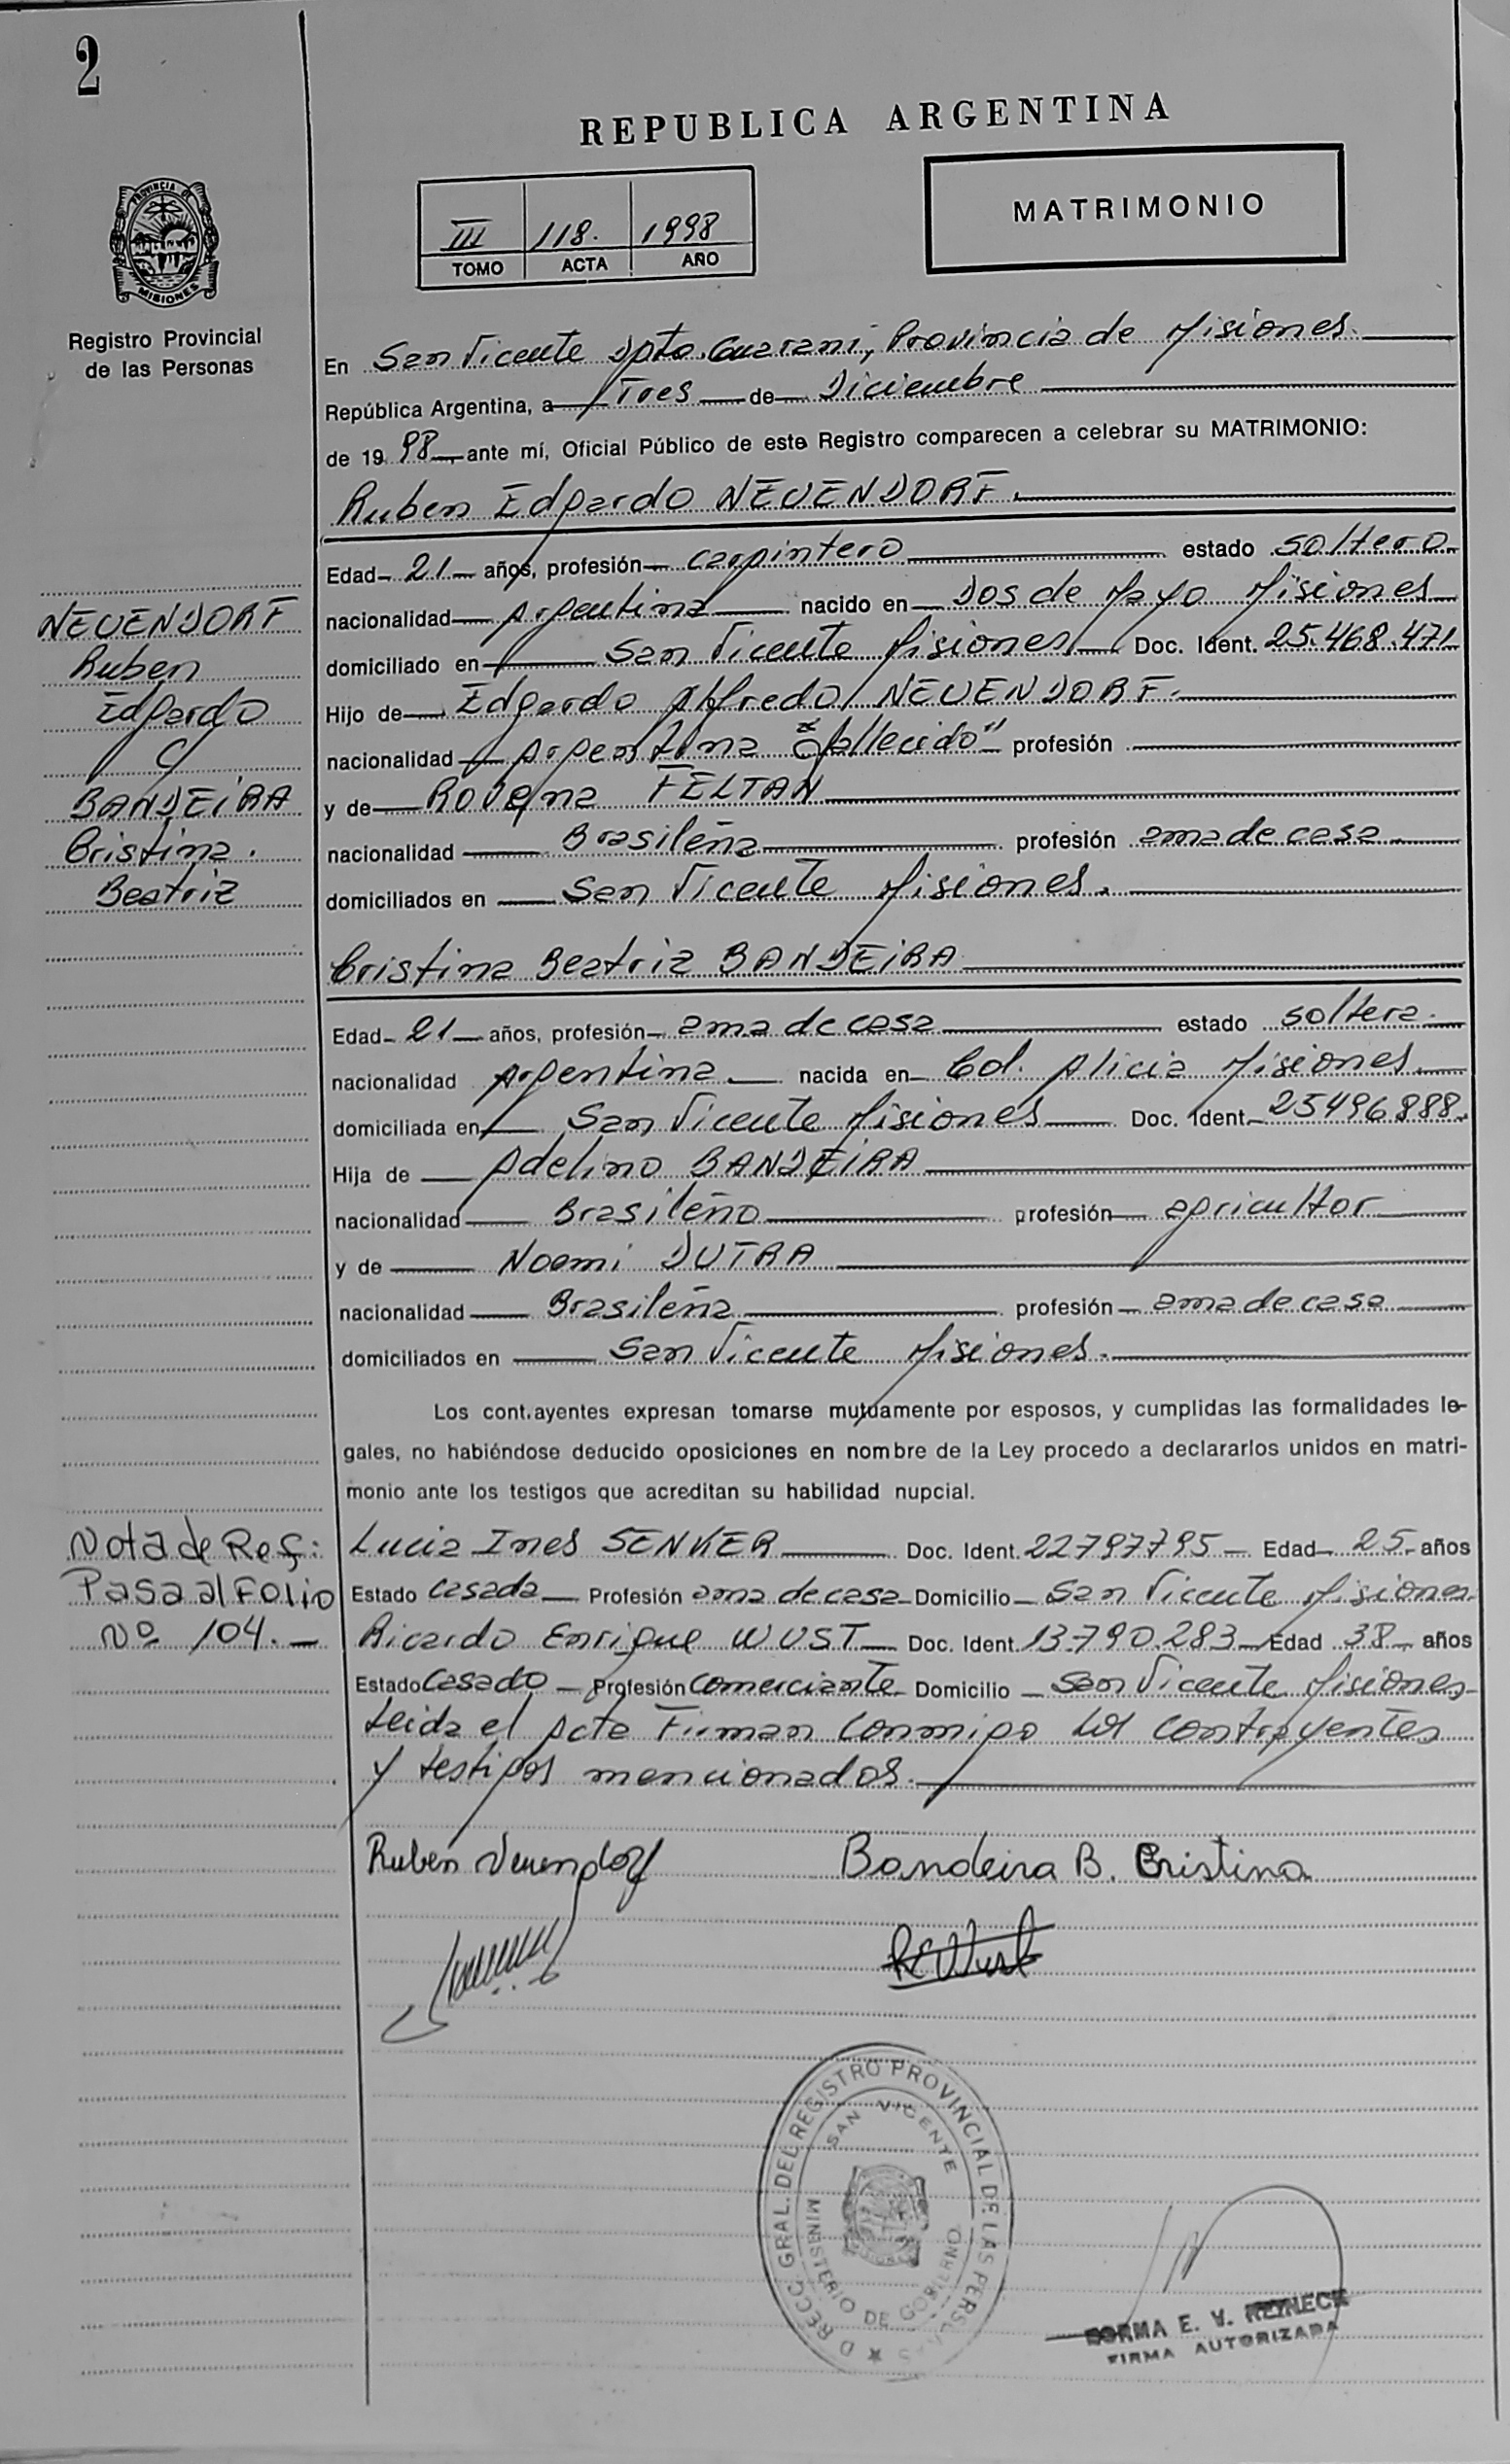 2
REPUBLICA ARGENTINA
MATRIMONIO
III 118. 1998
TOMO ACTA AÑO
PROVINCIA DE
MISIONES
Registro Provincial
de las Personas
En San Vicente Dpto. Guarani, Provincia de Misiones.
República Argentina, a Tres de Diciembre
de 1998, ante mí, Oficial Público de este Registro comparecen a celebrar su MATRIMONIO:
Ruben Edgardo NEUENDORF.
Edad 21 años, profesión carpintero estado soltero
nacionalidad Argentina nacido en Dos de Mayo Misiones
domiciliado en San Vicente Misiones Doc. Ident. 25.468.471
Hijo de Edgardo Alfredo NEUENDORF.
nacionalidad Argentina "fallecido" profesión
y de Rovena FELTAN
nacionalidad Brasileña profesión ama de casa
domiciliados en San Vicente Misiones.
NEUENDORF
Ruben
Edgardo
y
BANDEIRA
Cristina.
Beatriz
Cristina Beatriz BANDEIRA
Edad 21 años, profesión ama de casa estado soltera.
nacionalidad Argentina nacida en Col. Alicia Misiones
domiciliada en San Vicente Misiones Doc. Ident. 25496.888.
Hija de Adelino BANDEIRA
nacionalidad Brasileño profesión agricultor
y de Noemi DUTRA
nacionalidad Brasileña profesión ama de casa
domiciliados en San Vicente Misiones.
Los cont.ayentes expresan tomarse mutuamente por esposos, y cumplidas las formalidades le-
gales, no habiéndose deducido oposiciones en nombre de la Ley procedo a declararlos unidos en matri-
monio ante los testigos que acreditan su habilidad nupcial.
Nota de Reg:
Pasa al Folio
Nº 104.-
Lucia Ines SENKER Doc. Ident. 22797795 Edad 25 años
Estado casada Profesión ama de casa Domicilio San Vicente Misiones
Ricardo Enrique WUST Doc. Ident. 13.790.283 Edad 38 años
Estado casado Profesión comerciante Domicilio San Vicente Misiones
Leida el Acta Firman conmigo los contrayentes
y testigos mencionados.
Ruben Neuendorf Bandeira B. Cristina
REWust
DIRECC. GRAL. DEL REGISTRO PROVINCIAL DE LAS PERSONAS
SAN VICENTE
MINISTERIO DE GOBIERNO
NORMA E. V. REYNECK
FIRMA AUTORIZADA